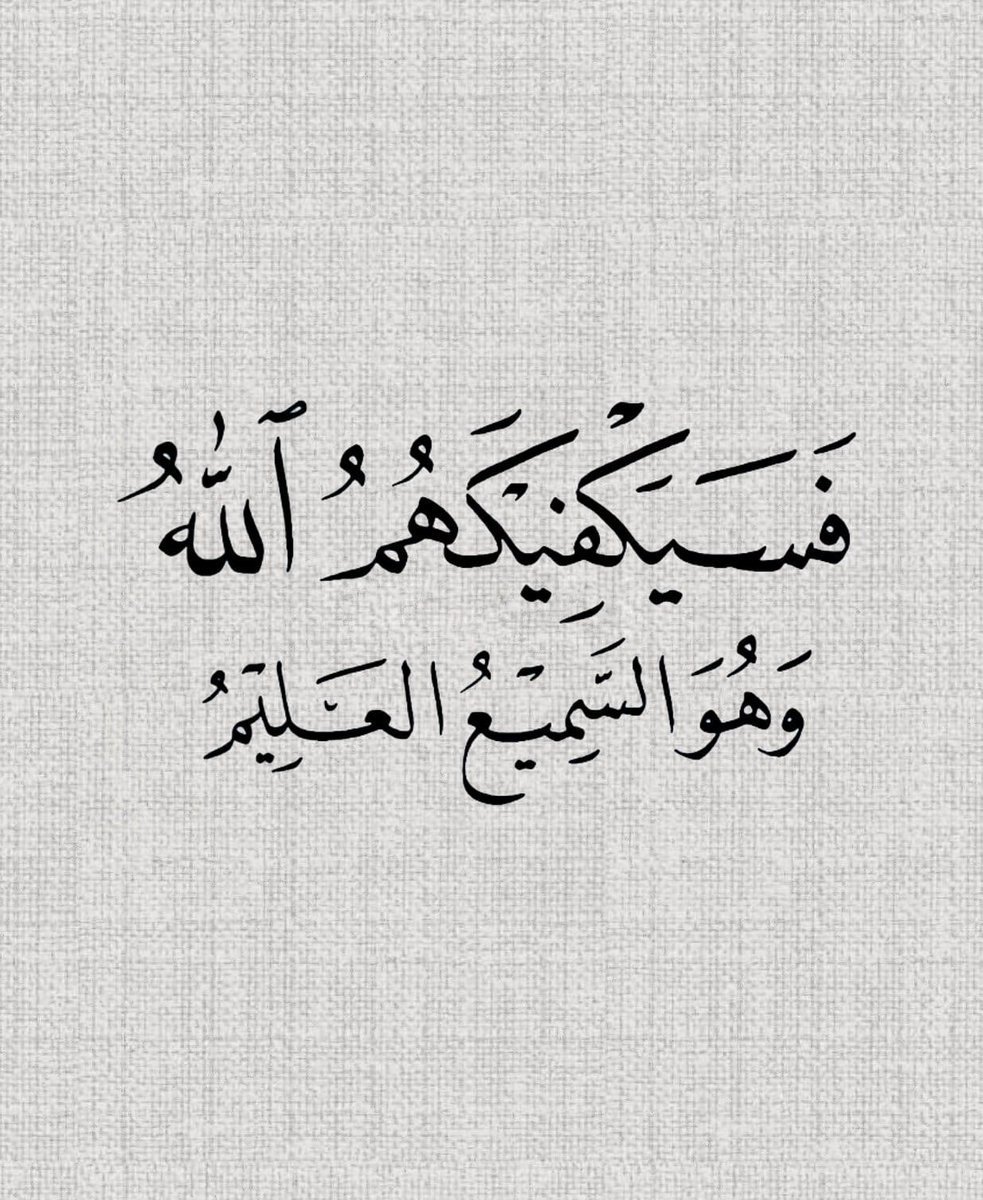 فَسَيَكْفِيْكَهُمُ ٱللّٰهُ
وَهُوَ السَّمِيْعُ العَلِيْمُ